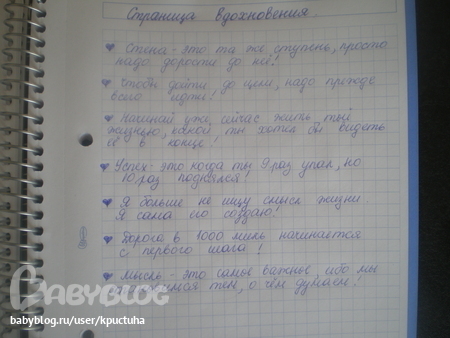 Страница вдохновения.
Стена - это та же ступень, просто
надо дорасти до неё!
Чтобы дойти до цели, надо прежде
всего идти!
Начинай уже сейчас жить той
жизнью, какой ты хотел бы видеть
её в конце!
Успех - это когда ты 9 раз упал, но
10 раз поднялся!
Я больше не ищу смысл жизни.
Я сама его создаю!
Дорога в 1000 миль начинается
с первого шага!
Мысль - это самое важное, ибо мы
тем, о чём думаем!
BABYBLOG
babyblog.ru/user/kpuctuha